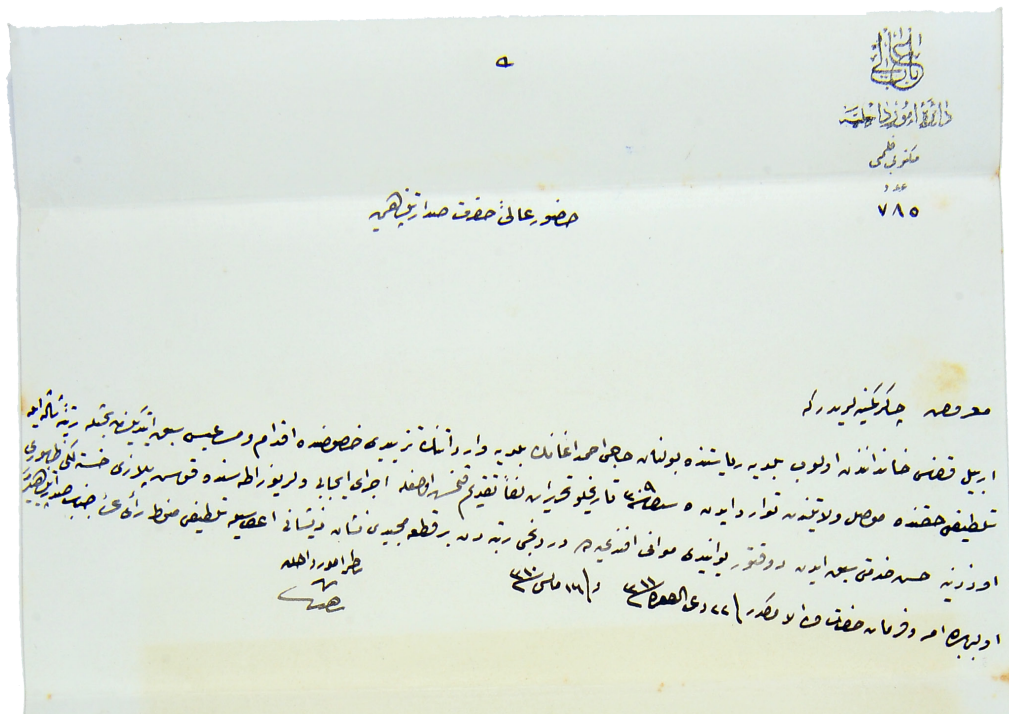 باب عالی
دائرهٔ امور داخلیه
مکتوبی قلمی
عدد
٧٨٥
حضور عالئ حضرت صدارتپناهی
معروض چاکر کمینه لریدر که
اربیل قضاسی خانداندن اولوب بلدیه ریاستنده بولنان حاجی احمد اغانك بلدیه وارداتنك تزییدی خصوصنده اقدام و مساعیسی سبق ایتدیکندن بحثله رتبهٔ ثالثه ایله
تلطیفی حقنده موصل ولایتندن توارد ایدن ٥ سنه ٣٠٩ تاریخلو تحریرات لفاً تقدیم قلنمش اولمغله اجرای ایجابی و لریز خسته لکی ظهوری
اوزرینه حسن خدمتی سبق ایدن دوقتور یوانیدی موانی افندی یه دردنجی رتبه دن بر قطعه مجیدی نشان ذیشانی اعطاسیله تلطیفی منوط رأی عالئ جناب صدارتپناهیلریدر
اولبابده امر و فرمان حضرت من له الامرکدر ٢٢ ذی القعده سنه ٣١١ و ١٦ مایس سنه ٣١٠
ناظر امور داخلیه